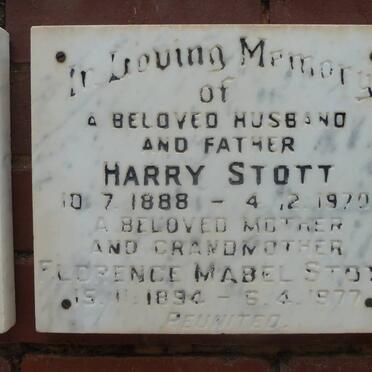 In Loving Memory
of
A BELOVED HUSBAND
AND FATHER
HARRY STOTT
10.7.1888 - 4.12.1970
A BELOVED MOTHER
AND GRANDMOTHER
FLORENCE MABEL STOTT
15.11.1894 - 6.4.1977
REUNITED.